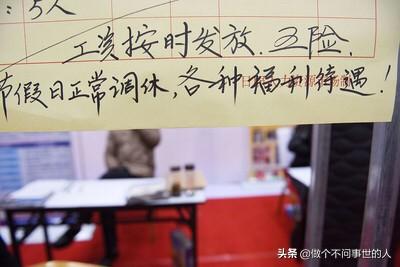 ：5人
工资按时发放.五险.
节假日正常调休,各种福利待遇!
头条 @做个不问事世的人